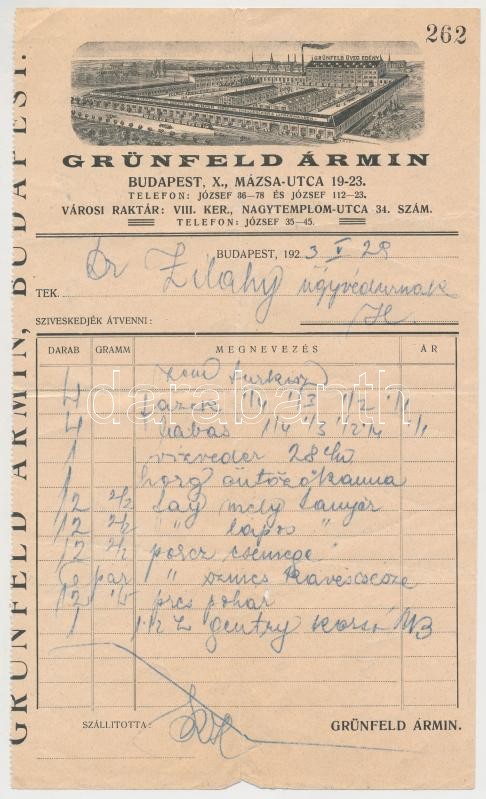 262
GRÜNFELD ÜVEG EDÉNY
GRÜNFELD ÁRMIN
BUDAPEST, X., MÁZSA-UTCA 19-23.
TELEFON: JÓZSEF 36—78 ÉS JÓZSEF 112—23.
VÁROSI RAKTÁR: VIII. KER., NAGYTEMPLOM-UTCA 34. SZÁM.
TELEFON: JÓZSEF 35—45.
BUDAPEST, 1923 V 28
TEK. Dr Zilahy ügyvédurnak
SZIVESKEDJÉK ÁTVENNI:
DARAB GRAMM MEGNEVEZÉS ÁR
zom
4 1/4 1/3 1/2 1/1
4 habos 1/4 1/3 1/2 1/1
1 vizveder 28
1 horg öntözőkanna
12 2/2 fay mély tanyér
12 2/2 " " lapos "
12 2/2 porcz csemege "
6 par " szines Kávéscsésze
12 pohár
1 1 1/2 L gentry korsó
SZÁLLITOTTA:
GRÜNFELD ÁRMIN.
GRÜNFELD ÁRMIN, BUDAPEST.
darabanth